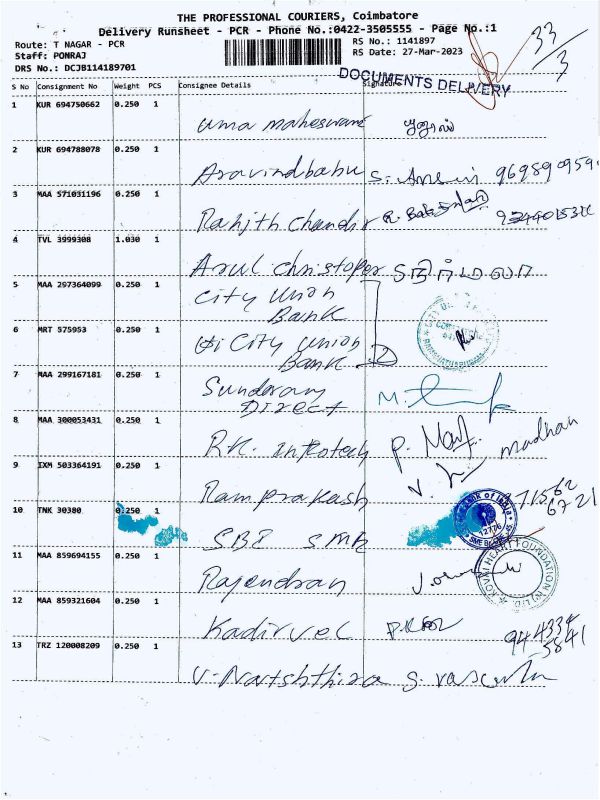 THE PROFESSIONAL COURIERS, Coimbatore
Delivery Runsheet - PCR - Phone No.:0422-3505555 - Page No.:1
Route: T NAGAR - PCR
RS No.: 1141897
Staff: PONRAJ
RS Date: 27-Mar-2023
DRS No.: DCJB114189701
33/3
DOCUMENTS DELIVERY
S No Consignment No Weight PCS Consignee Details Signature
1 KUR 694750662 0.250 1
uma maheswari
2 KUR 694788078 0.250 1
Aravindbabu
3 MAA 571031196 0.250 1
Ranjith Chandir
4 TVL 3999308 1.030 1
Arul Christoper நிர்மலா
5 MAA 297364099 0.250 1
City Union
Bank
6 MRT 575953 0.250 1
City Union
Bank 2
7 MAA 299167181 0.250 1
Sundaram
Direct
8 MAA 300053431 0.250 1
R.K. Infotech madhan
9 IXM 503364191 0.250 1
Ramprakash
10 TNK 30380 0.250 1
SBI SMR
11 MAA 859694155 0.250 1
Rajendran
KOVAI HEART FOUNDATION
12 MAA 859321604 0.250 1
Kadirvel
944334
5841
13 TRZ 120008209 0.250 1